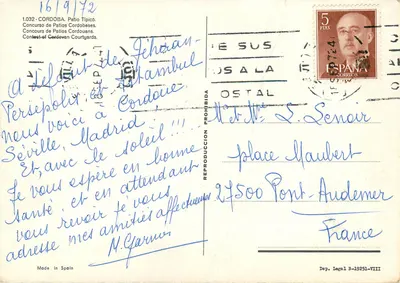 16/9/72
1.032 - CORDOBA. Patio Típico.
Concurso de Patios Cordobeses.
Concours de Patios Cordouans.
Contest of Cordovan Courtyards.
A défaut de Téhéran-
Persépolis et Istambul
nous voici à Cordoue
Séville, Madrid,
Et, avec le soleil !!!
Je vous espère en bonne
santé, et en attendant
vous revoir je vous
adresse mes amitiés affectueuses
Made in Spain
REPRODUCCION PROHIBIDA
E SUS
OS A LA
OSTAL
5
PTAS
ESPAÑA
CORREOS
Mr et Mme L. Lenoir
place Maubert
27500 Pont-Audemer
France
Dep. Legal B-19251-VIII